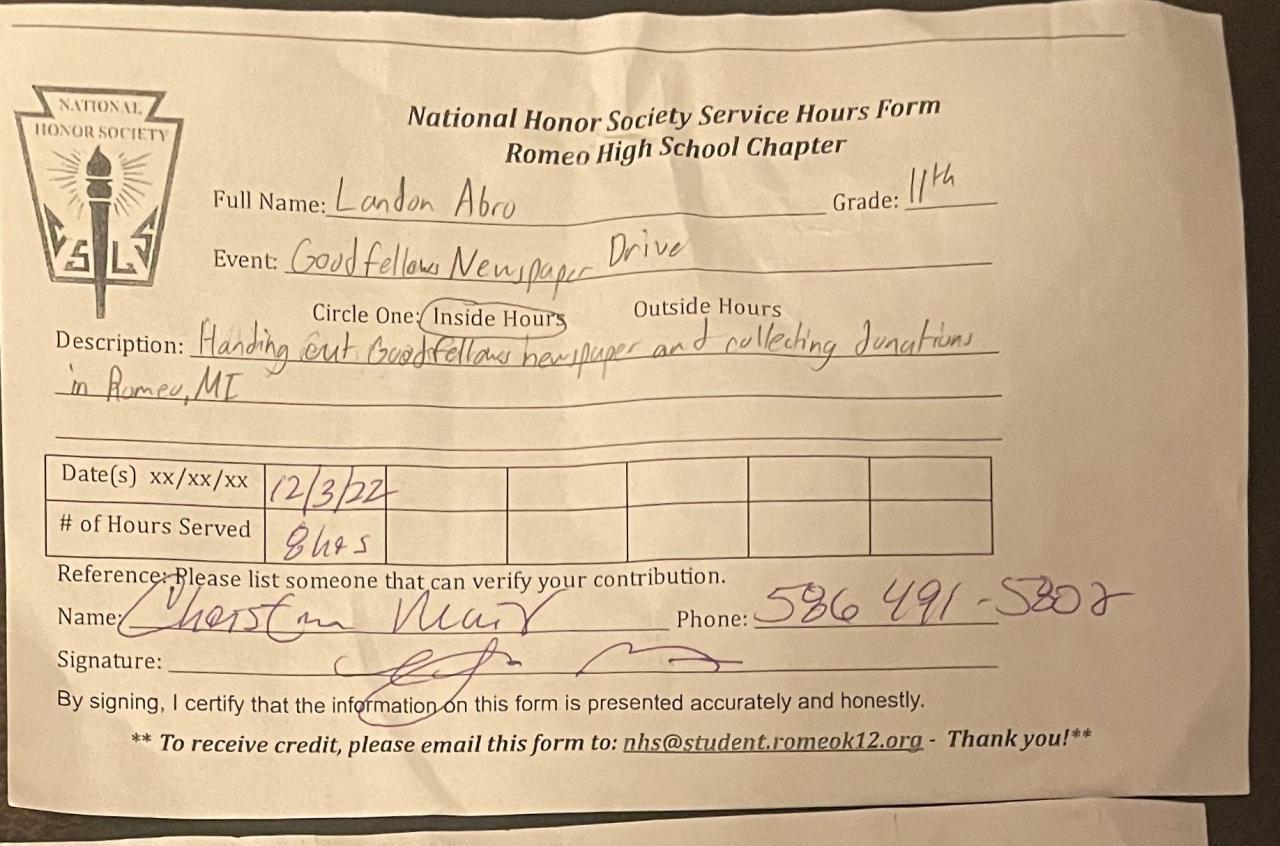 NATIONAL
HONOR SOCIETY
C S L S
National Honor Society Service Hours Form
Romeo High School Chapter
Full Name: Landon Abro Grade: 11th
Event: Goodfellows Newspaper Drive
Circle One: Inside Hours Outside Hours
Description: Handing out Goodfellows newspaper and collecting donations
in Romeo, MI
Date(s) xx/xx/xx 12/3/22
# of Hours Served 8hrs
Reference: Please list someone that can verify your contribution.
Name: Phone: 586 491-5802
Signature:
By signing, I certify that the information on this form is presented accurately and honestly.
** To receive credit, please email this form to: nhs@student.romeok12.org - Thank you!**